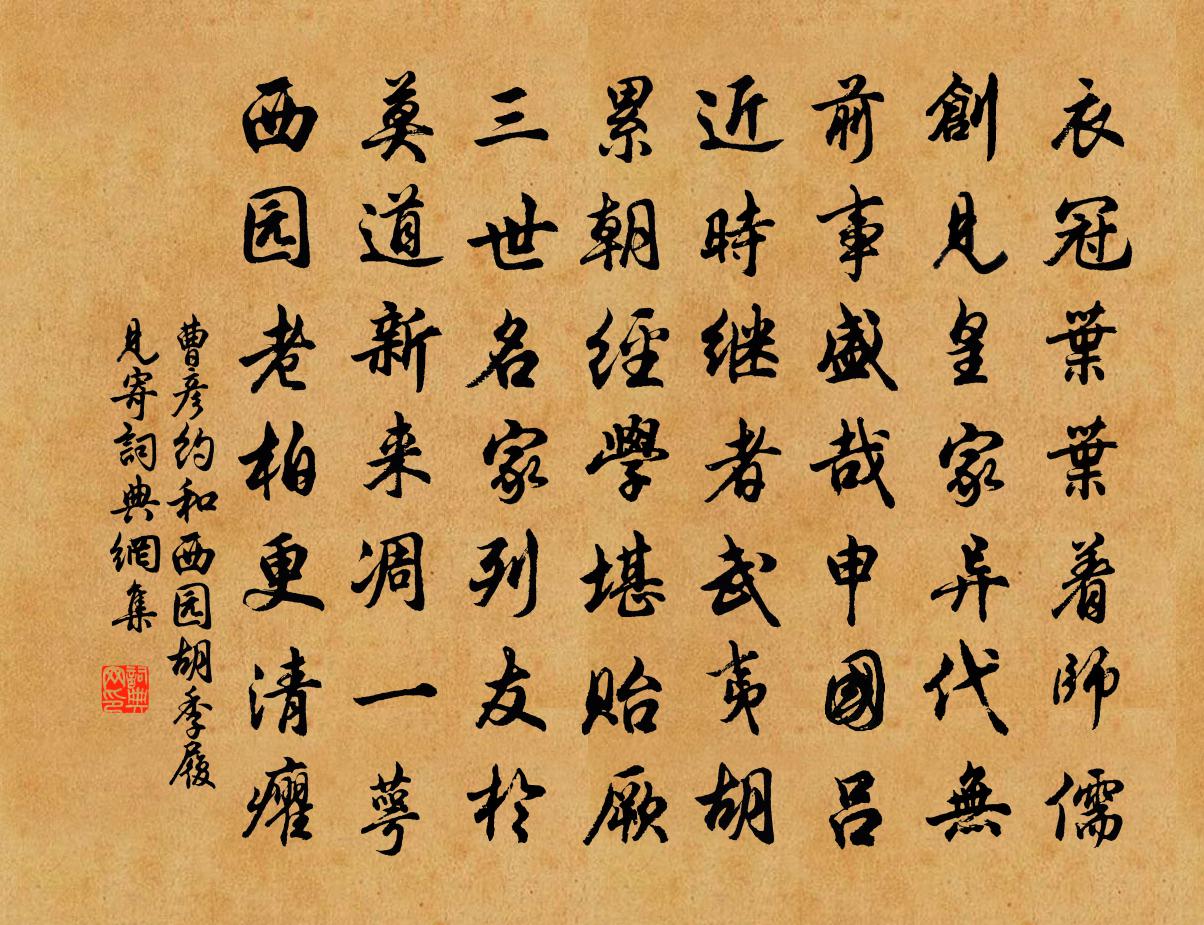 衣冠葉葉着師儒
創見皇家异代無
前事盛哉申國吕
近時继者武夷胡
累朝經學堪貽厥
三世名家列友於
莫道新来凋一萼
西园老柏更清癯
曹彦约和西园胡季履
見寄詞典網集
詞典
网印